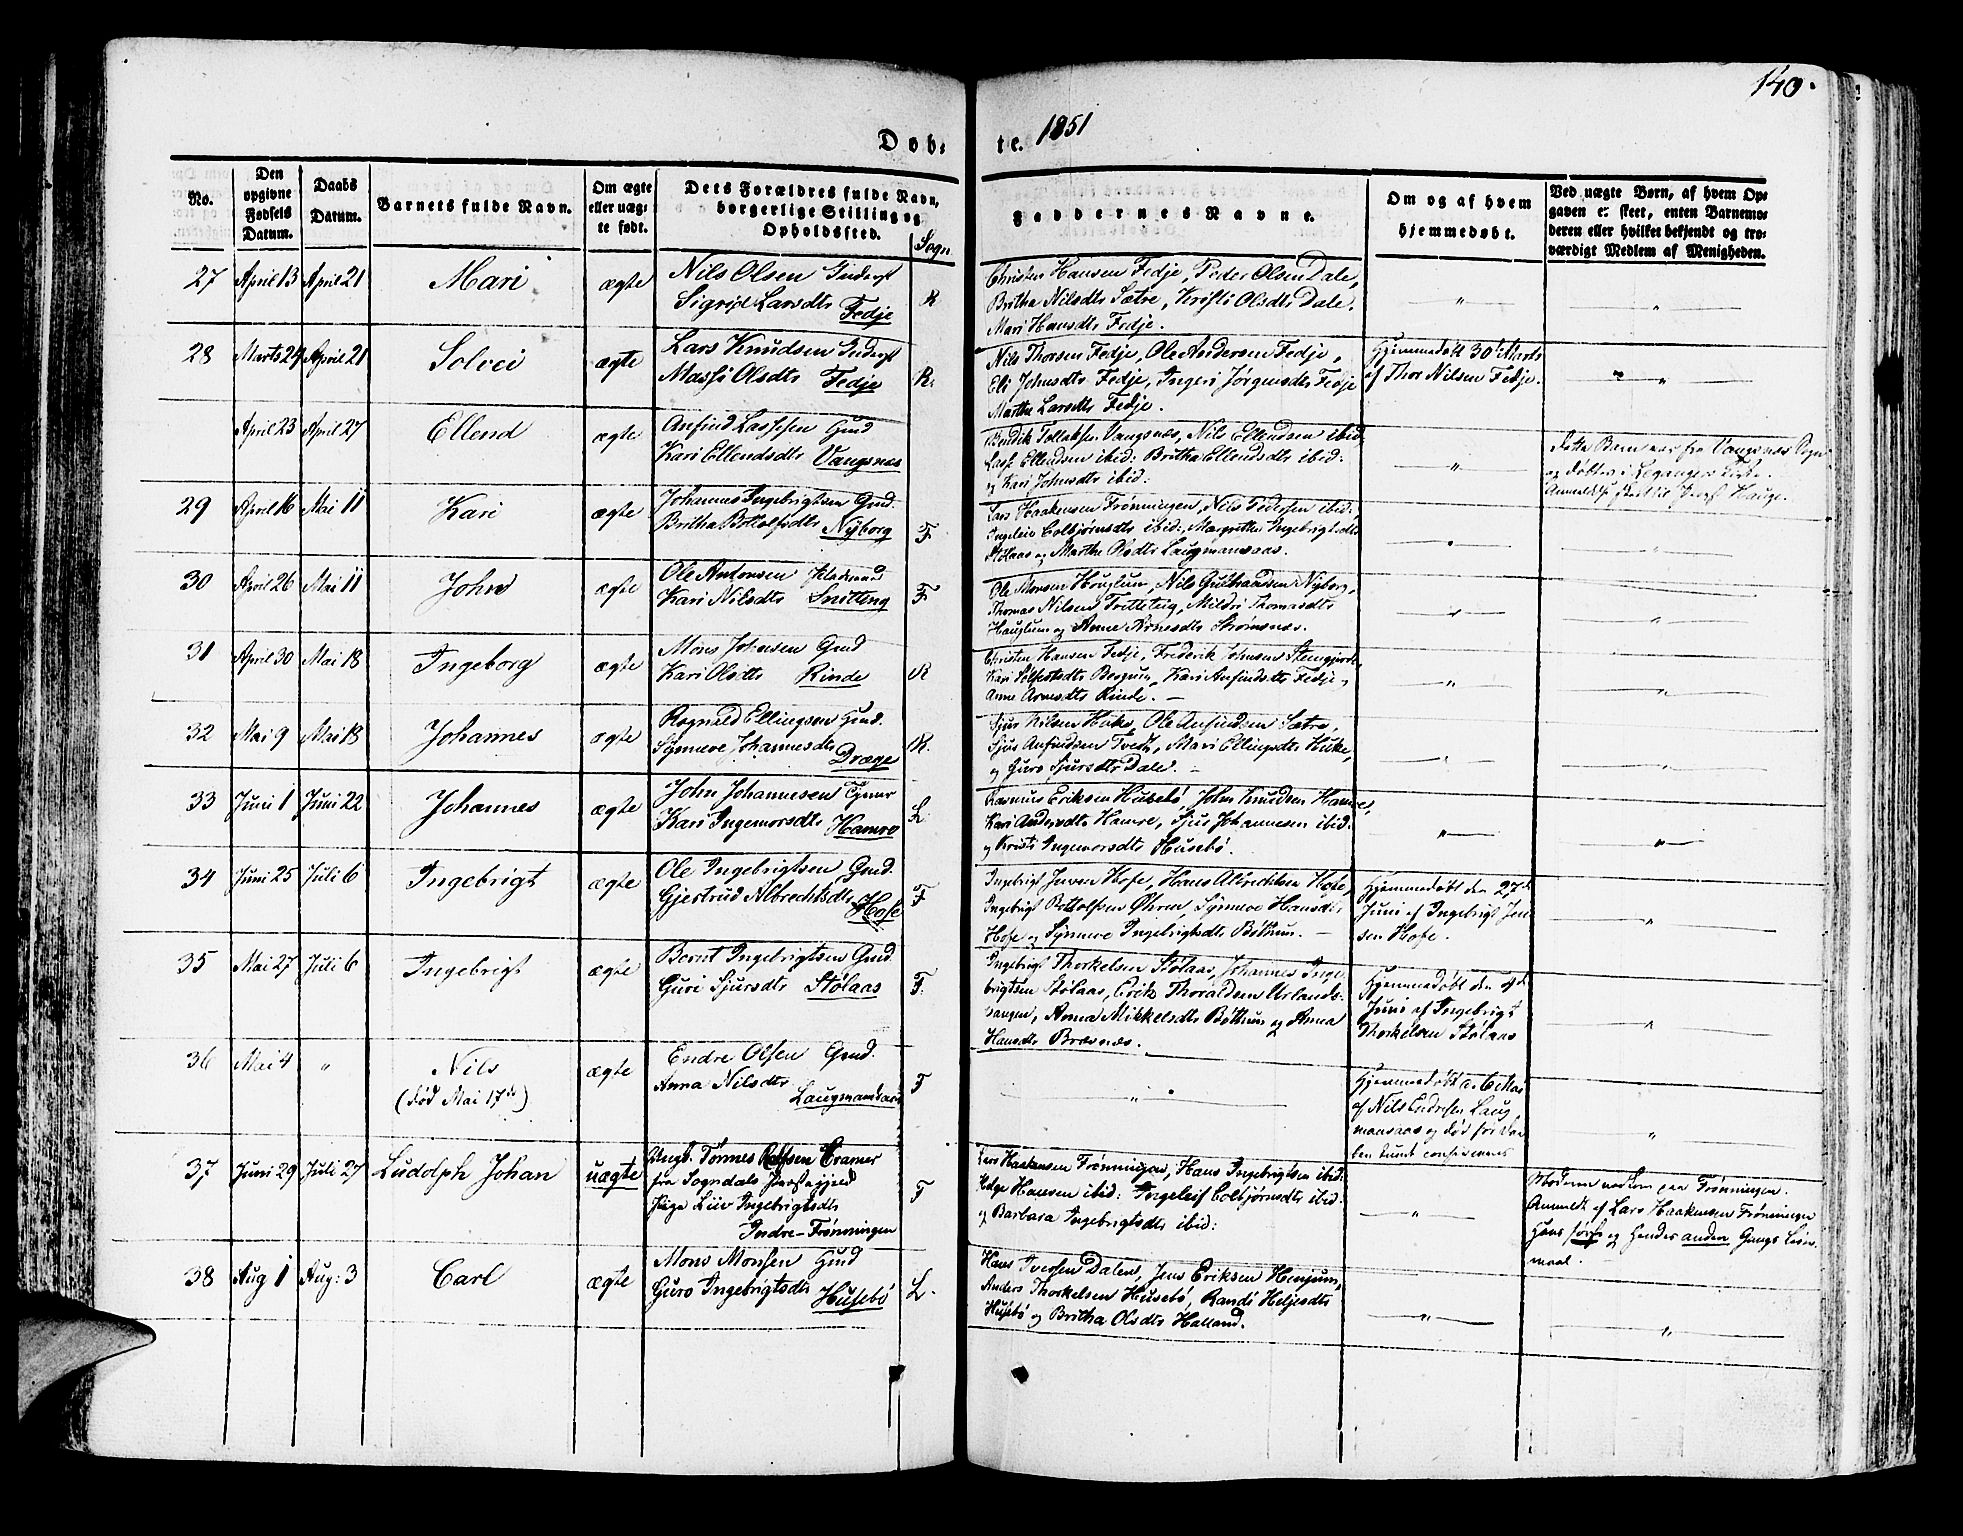 140.
Døb- te. 1851
No.
Den opgivne Fødsels Datum.
Daabs Datum.
Barnets fulde Navn.
Om ægte eller uægte født.
Dets Forældres fulde Navn, borgerlige Stilling og Opholdssted.
Sogn
Faddernes Navne.
Om og af hvem hjemmedøbt.
Ved uægte Børn, af hvem Opgaven er skeet, enten Barnemoderen eller hvilket bekjendt og troværdigt Medlem af Menigheden.
27 April 13 April 21 Mari ægte Nils Olsen
Sigrid Larsdtr Fedje R
Christen Hansen Fedje, Peder Olsen Dale,
Britha Nilsdtr Sætre, Kristi Olsdtr Dale.
Mari Hansdtr Fedje.
28 Marts 29 April 21 Solvei ægte Lars Knudsen
Massi Olsdtr Fedje R.
Nils Thorsen Fedje, Ole Andersen Fedje,
Eli Johnsdtr Fedje, Ingeri Jørgensdtr Fedje
Marthe Larsdtr Fedje.
Hjemmedøbt 30' Marts
af Thor Nilsen Fedje.
April 23 April 27 Ellend ægte Anfind Lassesen Gmd
Kari Ellendsdtr Vangsnæs
Bendik Tollaksen Vangsnæs, Nils Ellendsen ibid.
Lasse Ellendsen ibid: Britha Ellendsdtr ibid:
og Kari Johnsdtr ibid:
Dette Barn var fra Vangsnæs Sogn
og døbtes i Leganger Kirke.
29 April 16 Mai 11 Kari ægte Johannes Ingebrigtsen Gmd.
Britha Bottolfsdtr Nyborg F
Lars Haakensen Frønningen, Nils Pedersen ibid:
Ingeleiv Colbjørnsdtr ibid:, Margrethe Ingebrigtsdtr
Stølaas og Marthe Olsdtr Laugmansaas.
30 April 26 Mai 11 John ægte Ole Antonsen
Kari Nilsdtr Snitteng F
Ole Monsen Houglum, Nils Gulbrandsen Nyborg,
Thomas Nilsen Tretteteig, Mildri Thomasdtr
Hauglum og Anne Arnesdtr Strømsnæs.
31 April 30 Mai 18 Ingeborg ægte Mons Johnsen Gmd
Kari Olsdtr Rinde R
Christen Hansen Fedje, Frederik Johnsen
Kari Bergum, Kari Anfindsdtr Fedje,
Anne Arnesdtr Rinde.
32 Mai 9 Mai 18 Johannes ægte Rognald Ellingsen Gmd.
Synneve Johannesdtr Dræge R.
Sjur Nilsen Huke, Ole Anfindsen Sætre,
Sjur Anfindsen Tvedt, Mari Ellingsdtr Huke,
og Guro Sjursdtr Dale.
33 Juni 1 Juni 22 Johannes ægte John Johannesen
Kari Ingemorsdtr Hamre L
Rasmus Eriksen Husebø, John Knudsen Hamre,
Kari Andersdtr Hamre, Sjur Johannesen ibid:
og Kristi Ingemorsdtr Husebø.
34 Juni 25 Juli 6 Ingebrigt ægte Ole Ingebrigtsen Gmd.
Gjestrud Albrechtsdtr Hofe F
Ingebrigt Jensen Hofe, Hans Albrechtsen Hofe,
Ingebrigt Bottolfsen Øhren, Synneve Hansdtr
Hofe og Synneve Ingebrigtsdtr Bøthun.
Hjemmedøbt den 27de
Juni af Ingebrigt Jen
sen Hofe.
35 Mai 27 Juli 6 Ingebrigt ægte Bernt Ingebrigtsen Gmd
Guri Sjursdtr Stølaas F.
Ingebrigt Thorkelsen Stølaas, Johannes Inge-
brigtsen Stølaas, Erik Thoraldsen Urlands-
vangen, Anna Mikkelsdtr Bøthun og Anna
Hansdtr Bræsnæs.
Hjemmedøbt den
Juni af Ingebrigt
Thorkelsen Stølaas
36 Mai 4 " Nils
(død Mai 17de) ægte Endre Olsen Gmd.
Anna Nilsdtr
Laugmansaas F
Hjemmedøbt d. 6 Mai
af Nils Endresen Laug
mansaas og død før Daa
ben kunde confirmeres
37 Juni 29 Juli 27 Ludolph Johan uægte Ungk. Tønnes Rolfsen Cramer
fra Sogndals Præstegjeld
Pige Liiv Ingebrigtsdtr
Indre-Frønningen F
Lars Haakensen Frønningen, Hans Ingebrigtsen ibid:
Helge Hansen ibid: Ingeleif Colbjørnsdtr ibid:
og Barbara Ingebrigtsdtr ibid:
Moderen nedkom paa Frønningen.
Anmeldt af Lars Haakensen Frønningen
Hans første og Hendes anden Gangs Leier-
maal.
38 Aug 1 Aug: 3 Carl ægte Mons Monsen Gmd
Guro Ingebrigtsdtr Husebø L.
Hans Iversen Dalen, Jens Eriksen Henjum,
Anders Thorkelsen Husebø, Randi Heljesdtr
Husebø og Britha Olsdtr Halland.